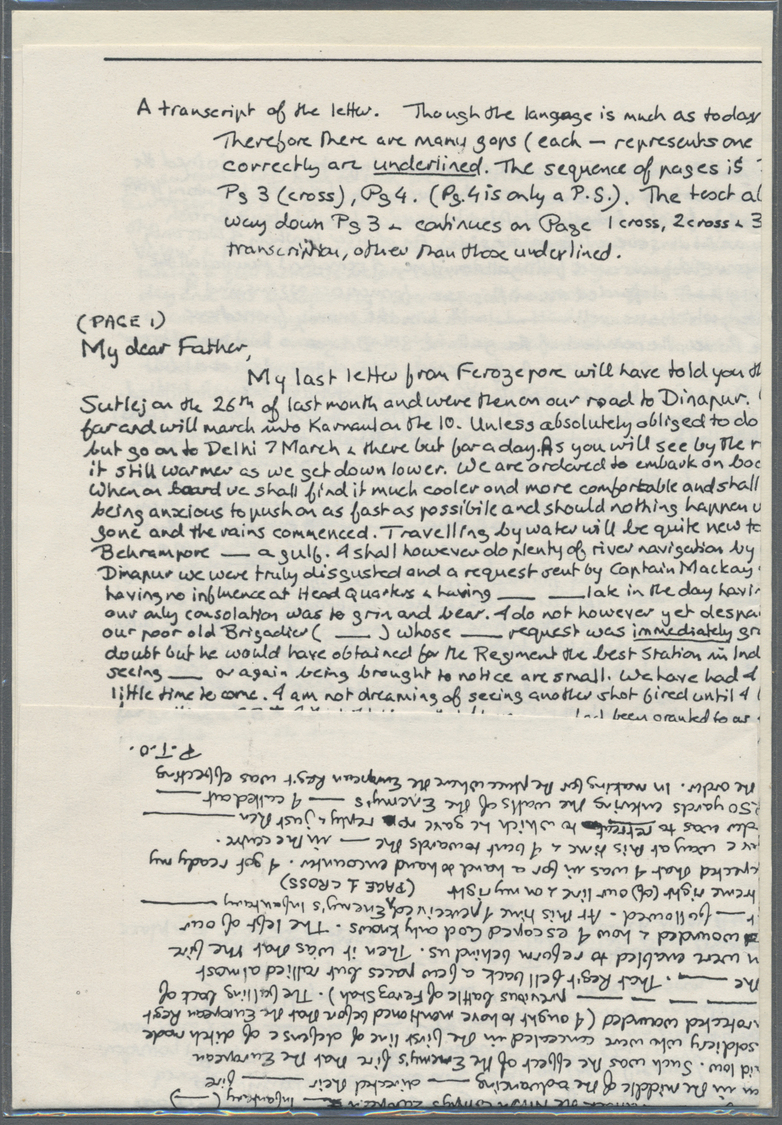 A transcript of the letter. Though the language is much as today
Therefore there are many gaps (each — represents one
correctly are underlined. The sequence of pages is
Pg 3 (cross), Pg 4. (Pg. 4 is only a P.S.). The text al
way down Pg 3 & continues on Page 1 cross, 2 cross & 3
transcription, other than those underlined.
(PAGE 1)
My dear Father,
My last letter from Ferozepore will have told you th
Sutlej on the 26th of last month and were then on our road to Dinapur.
far and will march into Karnaul on the 10. Unless absolutely obliged to do
but go on to Delhi 7 March & there but for a day. As you will see by the r
it still warmer as we get down lower. We are ordered to embark on boa
When on board we shall find it much cooler and more comfortable and shall
being anxious to push on as fast as possibile and should nothing happen u
gone and the rains commenced. Travelling by water will be quite new to
Behrampore — a gulf. I shall however do plenty of river navigation by
Dinapur we were truly disgusted and a request sent by Captain Mackay
having no influence at Head Quarters & having — — late in the day havin
our only consolation was to grin and bear. I do not however yet despai
our poor old Brigadier ( — ) whose — request was immediately gr
doubt but he would have obtained for the Regiment the best Station in Ind
seeing — or again being brought to notice are small. We have had
little time to come. I am not dreaming of seeing another shot fired until I
had been granted to us
soldiery who were concealed in the first line of defense of ditch made
rotected wounded (I ought to have mentioned before that the European Regt
— — — — previous battle of Feroz Shah). The falling back of
the — . That Regt fell back a few paces but rallied almost
n were enabled to reform behind us. Then it was that the fire
wounded & how I escaped God only knows. The left of our
— followed. At this time I perceived Enemy's Infantry —
treme right (of) our line & on my right (PAGE 1 CROSS)
xpected that I was in for a hand to hand encounter. I got ready my
ve way at this time & I bent towards the — in the centre.
der was to retreat to which he gave no reply & just then —
250 yards entering the walls of the Enemy's — I called out —
the order. In making for the place where the European Regt was effecting
P.T.O.